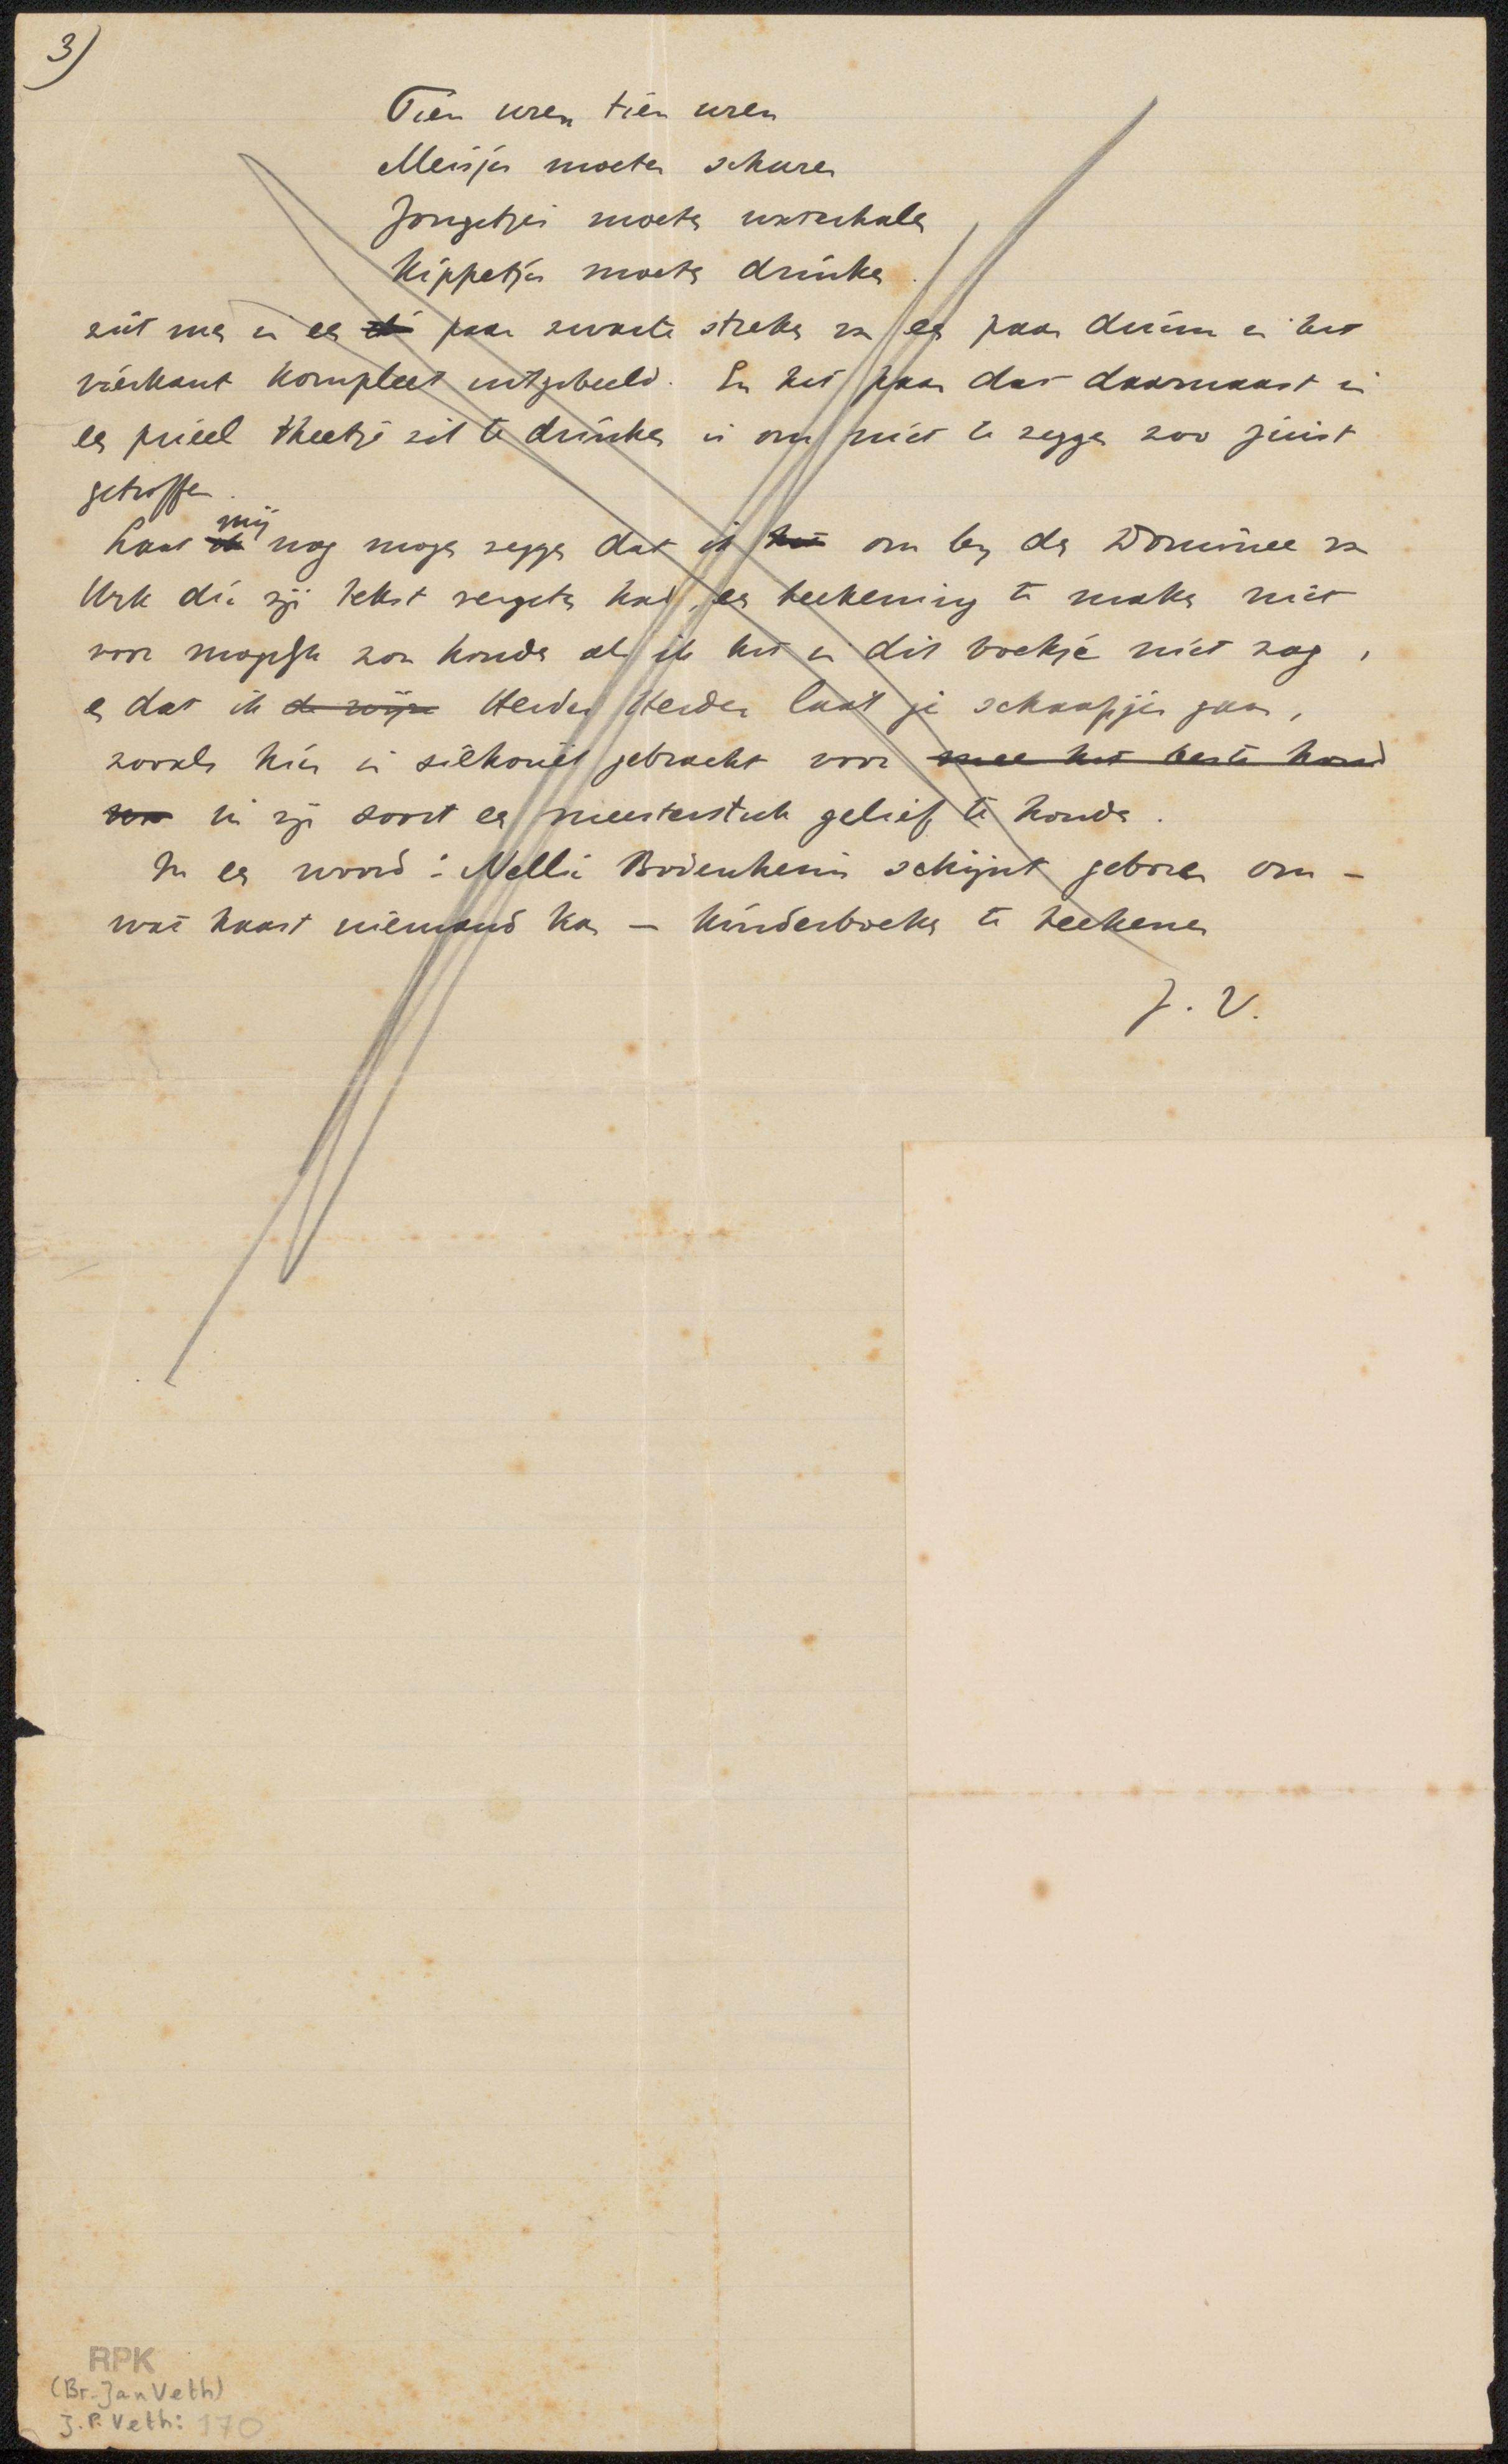 3)
Tien uren tien uren
Meisjes moeten schuren
Jongetjes moeten waterhalen
Kippetjes moeten drinken.
ziet men in een paar zwarte streken van een paar duim in het
vierkant kompleet uitgebeeld. En het paar dat daarnaast in
een prieel theetje zit te drinken is om niet te zeggen zoo juist
getroffen.
Laat mij nog mogen zeggen dat ik om bij den Dominee van
Urk die zijn tekst vergeten had, een teekening te maken niet
voor mogelijk zou houden als ik het in dit boekje niet zag,
en dat ik de wijze Herder Herder laat je schaapjes gaan,
zooals hier in silhouet gebracht voor
in zijn soort een meesterstuk gelief te houden.
In een woord: Nellie Bodenheim schijnt geboren om -
wat haast niemand kan - kinderboeken te teekenen
J. V.
RPK
(Br. Jan Veth)
J. P. Veth: 170